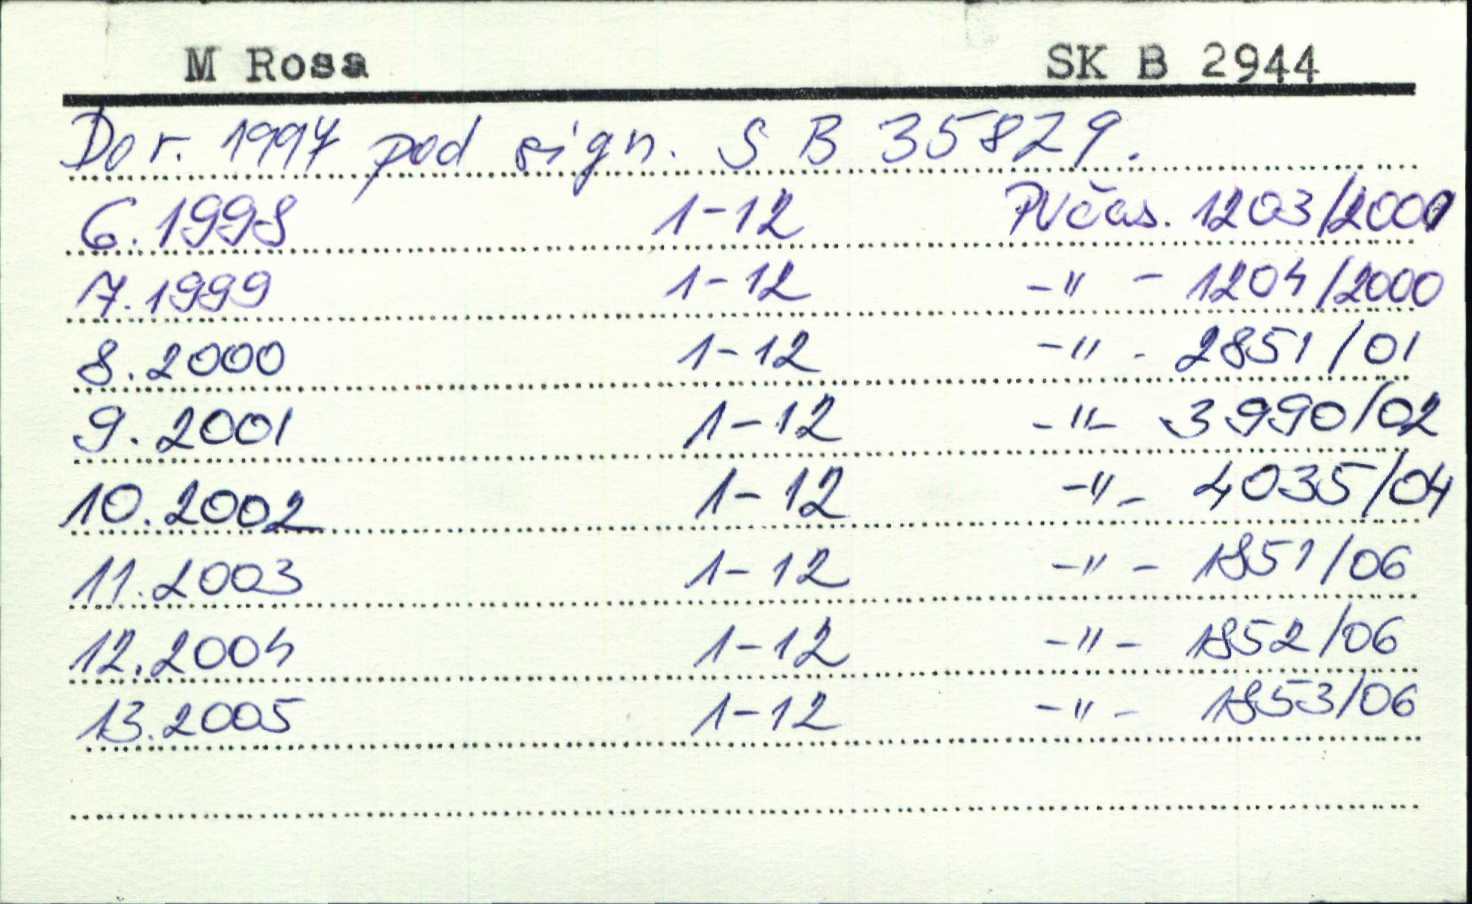 M Rosa SK B 2944
Do r. 1997 pod sign. S B 35829.
6.1998 1-12 PVčas. 1203/2000
7.1999 1-12 -"- 1204/2000
8.2000 1-12 -"- 2851/01
9.2001 1-12 -"- 3990/02
10.2002 1-12 -"- 4035/04
11.2003 1-12 -"- 1851/06
12.2004 1-12 -"- 1852/06
13.2005 1-12 -"- 1853/06